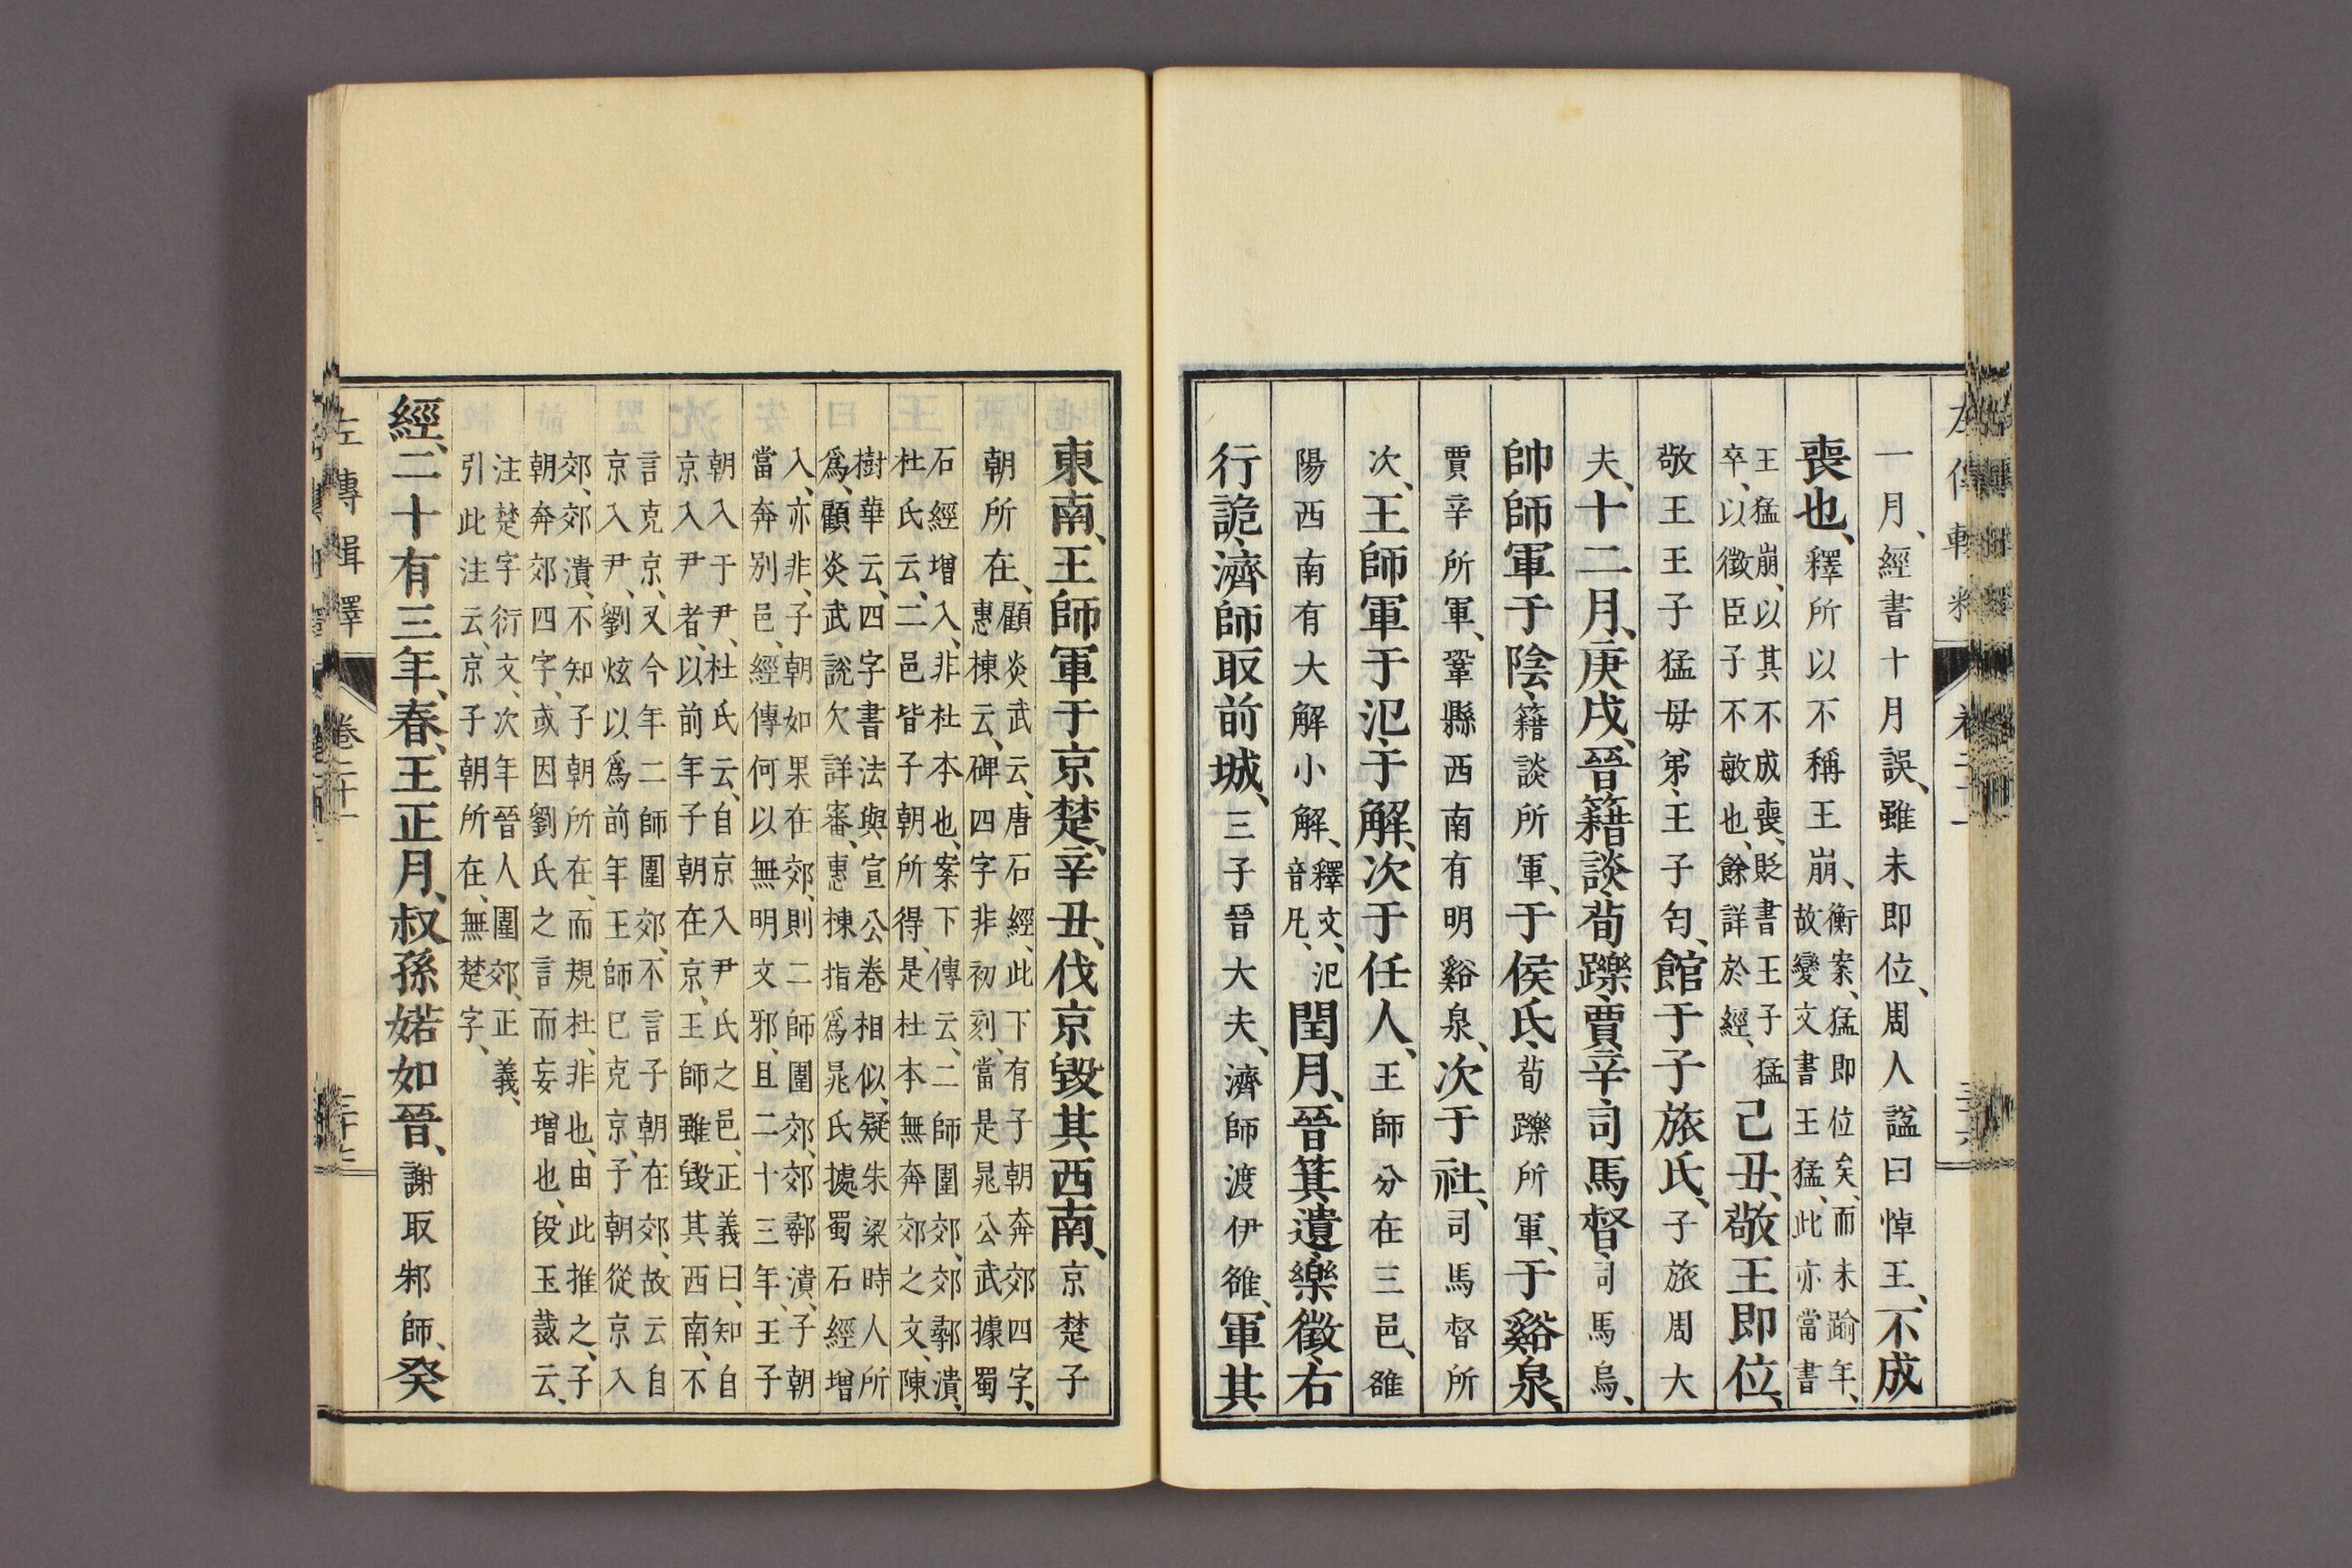 一月、經書十月誤、雖未即位、周人諡曰悼王、不成
喪也、釋所以不稱王崩、衡案、猛即位矣、而未踰年、
故變文書王猛、此亦當書
王猛崩、以其不成喪、貶書王子猛
卒、以徵臣子不敏也、餘詳於經、
己丑、敬王即位、
敬王王子猛毋弟、王子匄、館于子旅氏、子旅周大
夫、十二月、庚戌、晉籍談、荀躒、賈辛、司馬督、司馬烏、
帥師軍于陰、籍談所軍、于侯氏、荀躒所軍、于谿泉、
賈辛所軍、鞏縣西南有明谿泉、次于社、司馬督所
次、王師軍于氾、于解、次于任人、王師分在三邑、雒
陽西南有大解小解、釋文、氾
音凡、
閏月、晉箕遺、樂徵、右
行詭、濟師取前城、三子晉大夫、濟師渡伊雒、軍其
東南、王師軍于京楚、辛丑、伐京毀其西南、京楚子
朝所在、顧炎武云、唐石經、此下有子朝奔郊四字、
惠棟云、碑四字非初刻、當是晁公武據蜀
石經增入、非杜本也、案下傳云、二師圍郊、郊鄩潰、
杜氏云、二邑皆子朝所得、是杜本無奔郊之文、陳
樹華云、四字書法與宣公卷相似、疑朱梁時人所
爲、顧炎武說欠詳審、惠棟指爲晁氏據蜀石經增
入、亦非、子朝如果在郊、則二師圍郊、郊鄩潰、子朝
當奔別邑、經傳何以無明文邪、且二十三年、王子
朝入于尹、杜氏云、自京入尹氏之邑、正義曰、知自
京入尹者、以前年子朝在京、王師雖毀其西南、不
言克京、又今年二師圍郊、不言子朝在郊、故云自
京入尹、劉炫以爲前年王師已克京、子朝從京入
郊、郊潰、不知子朝所在、而規杜、非也、由此推之、子
朝奔郊四字、或因劉氏之言而妄增也、段玉裁云、
注楚字衍文、次年晉人圍郊、正義、
引此注云、京子朝所在、無楚字、
經、二十有三年、春、王正月、叔孫婼如晉、謝取邾師、癸
左傳輯釋
卷二十一